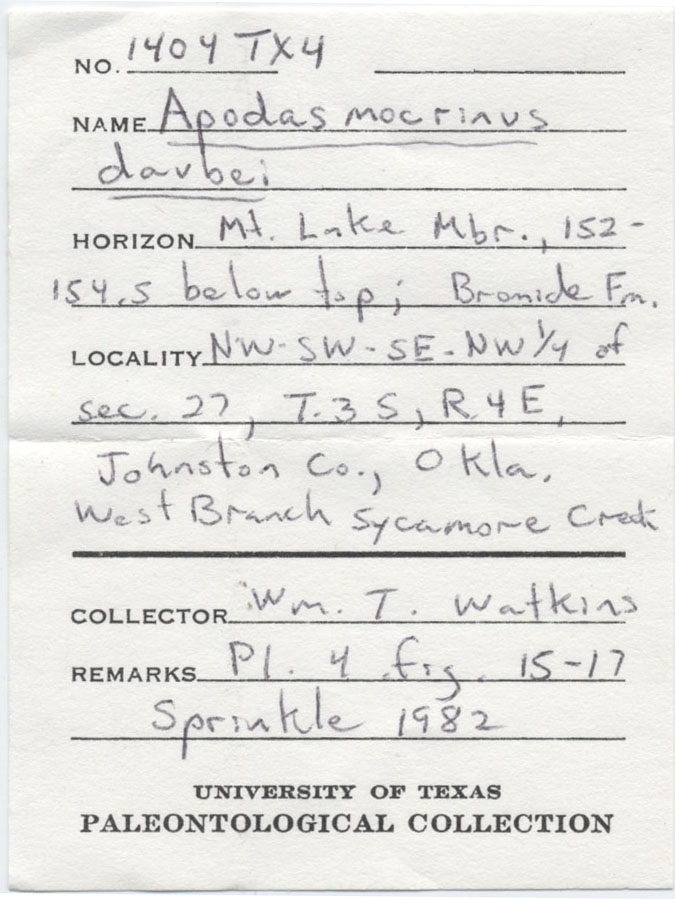 NO. 1404 TX4
NAME Apodasmocrinus
daubei
HORIZON Mt. Lake Mbr., 152-
154.5 below top; Bromide Fm.
LOCALITY NW-SW-SE-NW 1/4 of
sec. 27, T.3S, R4E,
Johnston Co., Okla.
West Branch Sycamore Creek
COLLECTOR Wm. T. Watkins
REMARKS Pl. 4 fig. 15-17
Sprinkle 1982
UNIVERSITY OF TEXAS
PALEONTOLOGICAL COLLECTION